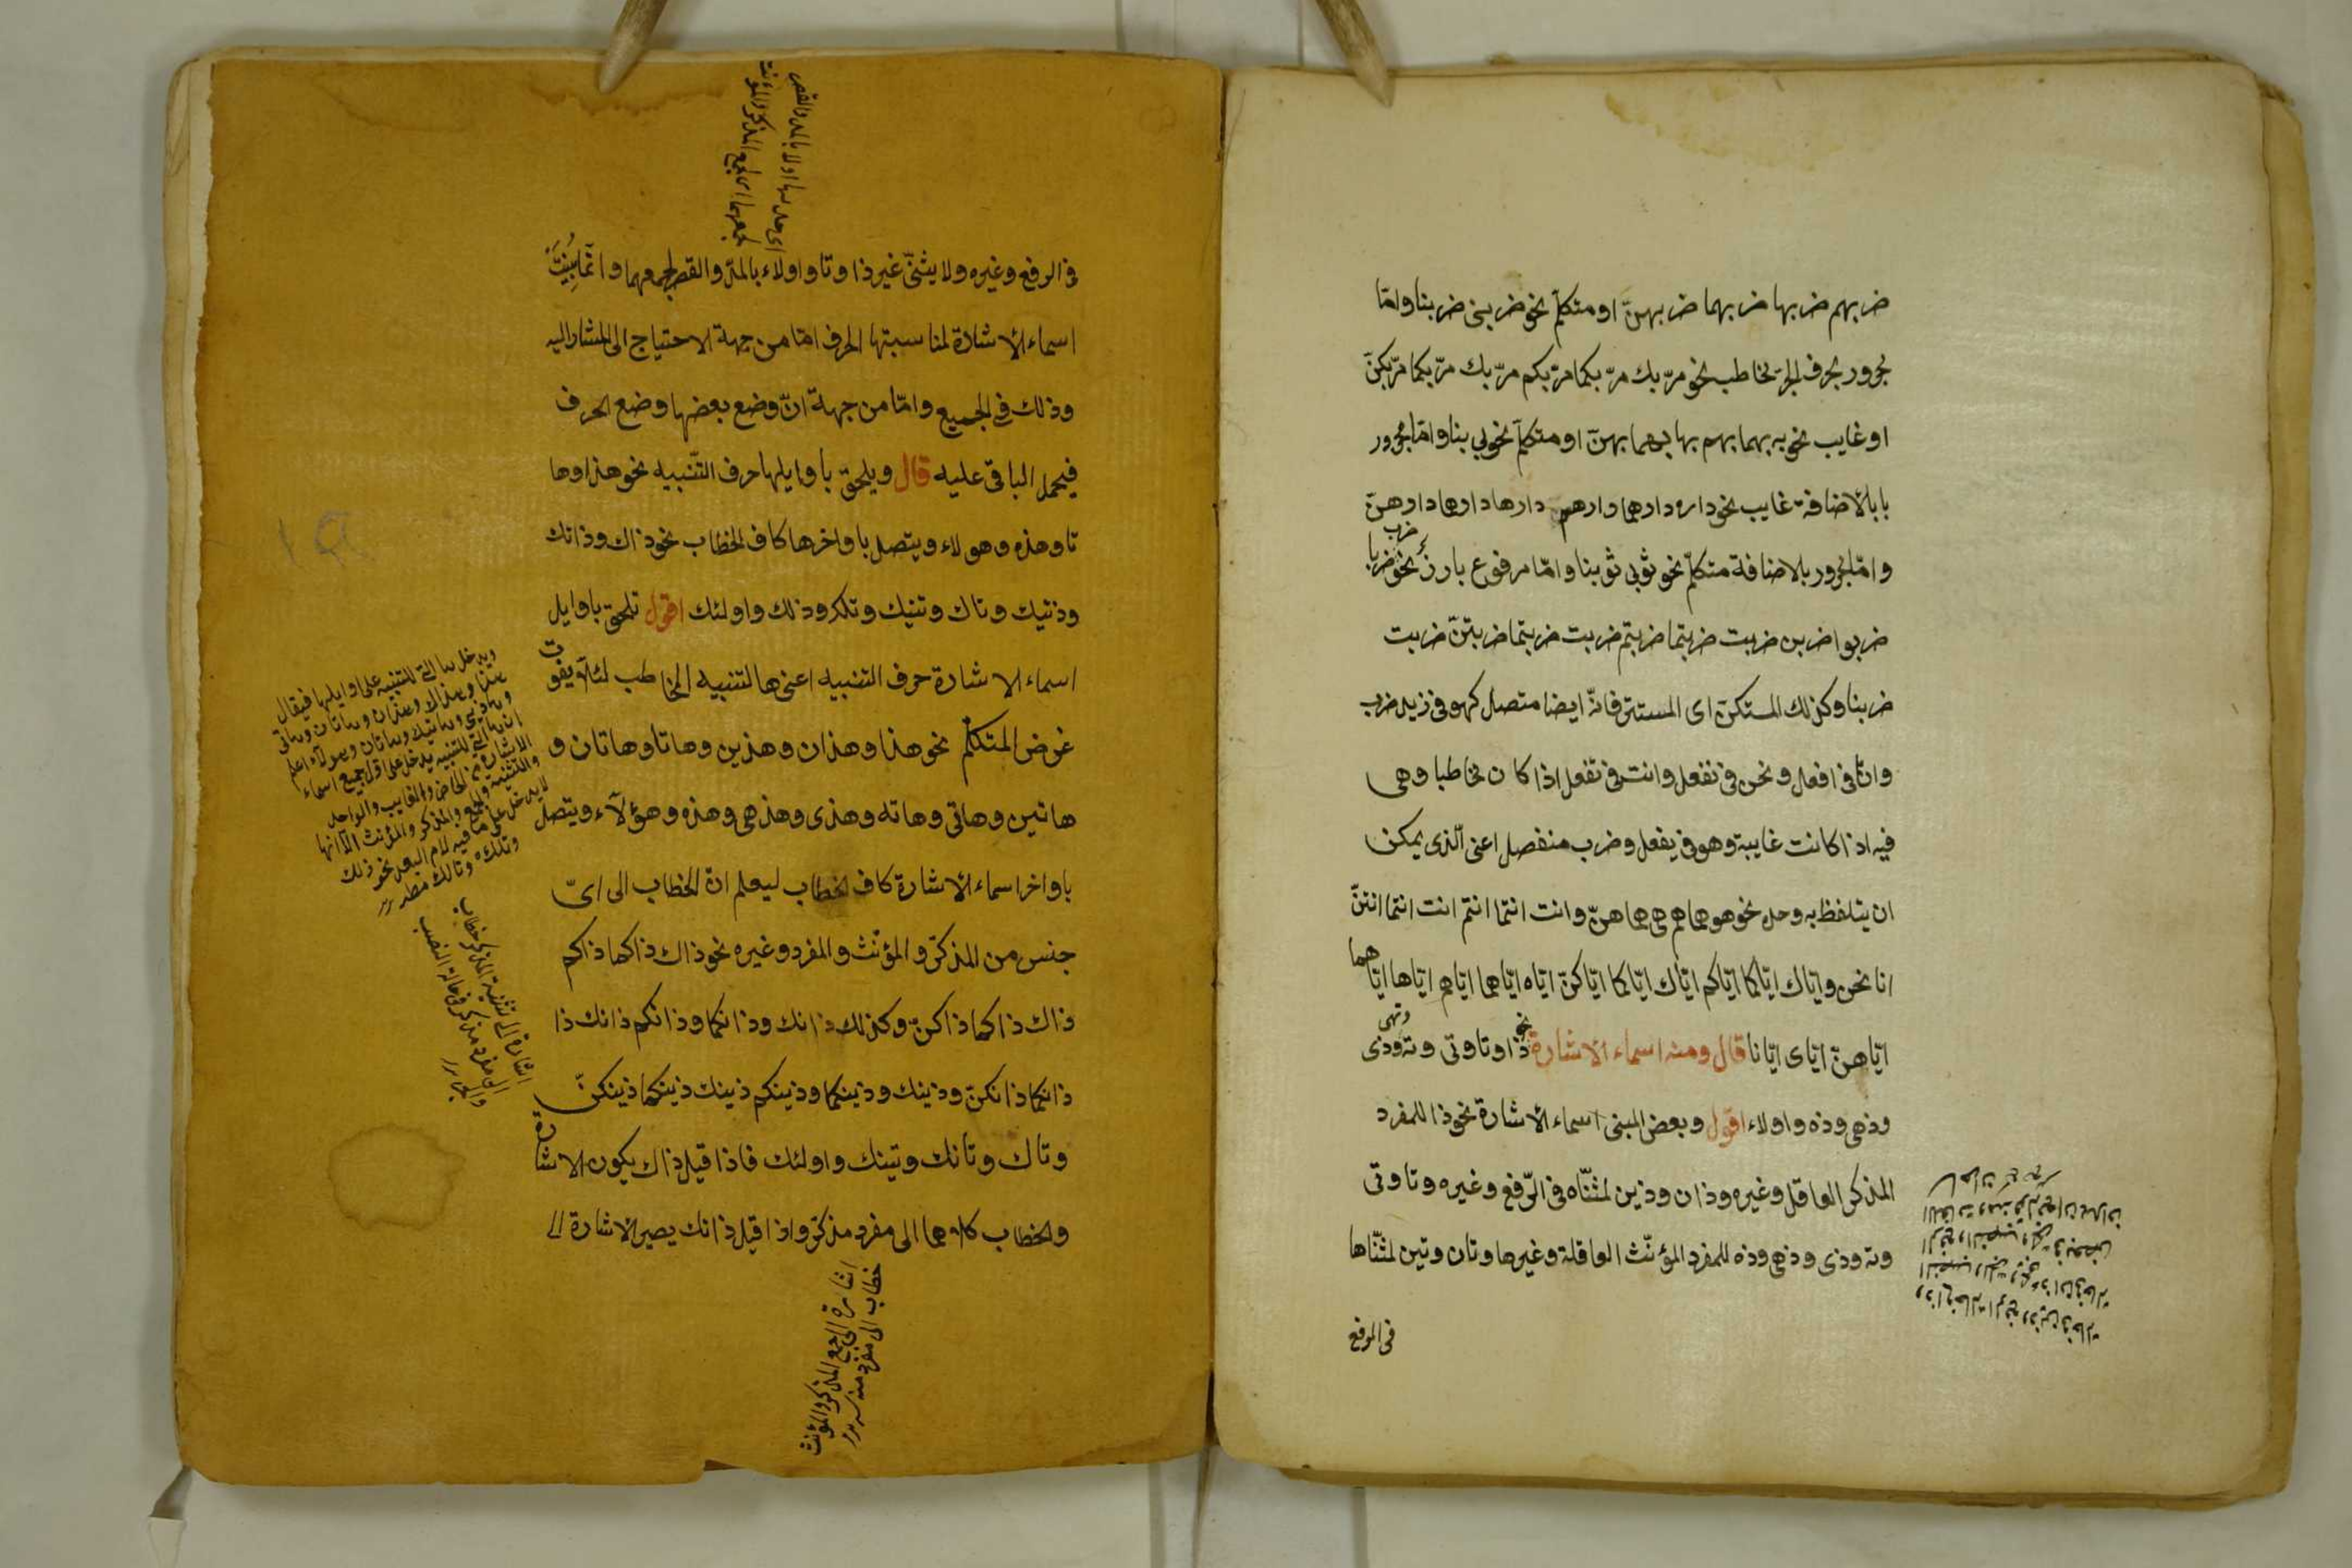 ضربهم ضربها ضربهما ضربهنّ او متكلّم نحو ضربنى ضربنا وامّا
مجرور بحرف الجرّ مخاطب نحو مرّ بك مرّ بكما مرّ بكم مرّ بك مرّ بكما مرّ بكنّ
او غايب نحو به بهما بهم بها بهما بهنّ او متكلّم نحو بى بنا وامّا مجرور
بالاضافة غايب نحو داره دارهما دارهم دارها دارهما دارهنّ
وامّا مجرور بالاضافة متكلّم نحو ثوبى ثوبنا وامّا مرفوع بارز نحو ضرب ضربا
ضربوا ضربن ضربت ضربتما ضربتم ضربت ضربتما ضربتنّ ضربت
ضربنا وكذلك المستكنّ اى المستتر فانّه ايضا متصل كهو فى زيد ضرب
وانا فى افعل ونحن فى نفعل وانت فى تفعل اذا كان مخاطبا وهى
فيه اذا كانت غايبة وهو فى يفعل وضرب منفصل اعنى الّذى يمكن
ان يتلفظ به وحده نحو هو هما هم هى هما هنّ وانت انتما انتم انت انتما انتنّ
انا نحن وايّاك ايّاكما ايّاكم ايّاك ايّاكما ايّاكنّ ايّاه ايّاهما ايّاهم ايّاها ايّاهما
ايّاهنّ ايّاى ايّانا قال ومنه اسماء الاشارة نحو ذا وتا وتى وته وتهى وذى
وذهى وذه واولاء اقول وبعض المبنى اسماء الاشارة نحو ذا للمفرد
المذكر العاقل وغيره وذان وذين لمثنّاه فى الرّفع وغيره وتا وتى
وته وذى وذهى وذه للمفرد المؤنّث العاقلة وغيرها وتان وتين لمثنّاها
فى الرفع
فى الرفع وغيره ولا يثنّى غير ذا وتا واولاء بالمدّ والقصر لجمعهما وانّما بُنِيَتْ
اسماء الاشارة لمناسبتها الحرف امّا من جهة الاحتياج الى المشار اليه
وذلك فى الجميع وامّا من جهة انّ وضع بعضها وضع الحرف
فيحمل الباقى عليه قال ويلحق باوايلها حرف التّنبيه نحو هذا وها
تا وهذه وهولاء ويتصل باواخرها كاف الخطاب نحو ذاك وذانك
وذنيك وتاك وتنيك وتلك وذلك واولئك اقول تلحق باوايل
اسماء الاشارة حرف التنبيه اعنى ها لتنبيه المخاطب لئلّا يفوت
غرض المتكلّم نحو هذا وهذان وهذين وهاتا وهاتان و
هاتين وهاتى وهاته وهذى وهذهى وهذه وهؤلآء ويتصل
باواخر اسماء الاشارة كاف الخطاب ليعلم انّ الخطاب الى اىّ
جنس من المذكّر والمؤنّث والمفرد وغيره نحو ذاك ذاكما ذاكم
ذاك ذاكما ذاكنّ وكذلك ذانك وذانكما وذانكم ذانك ذا
ذانكما ذانكنّ وذينك وذينكما وذينكم ذينك ذينكما ذينكنّ
وتاك وتانك وتينك واولئك فاذا قيل ذاك يكون الاشارة
والخطاب كلاهما الى مفرد مذكّر واذا قيل ذانك يصير الاشارة
جمعهما اى لجمع المذكر والمؤنث
ويدخل ها التى للتنبيه على اوايلها فيقال
ان ها التى للتنبيه يدخل على اول جميع اسماء
لا يدخل على ما فيه لام البعد نحو ذلك
اشارة الى تثنية المذكر خطاب
الى مفرد مذكر فى حالة النصب
والجر
اشارة الى جمع المذكر والمؤنث
خطاب الى مفرد